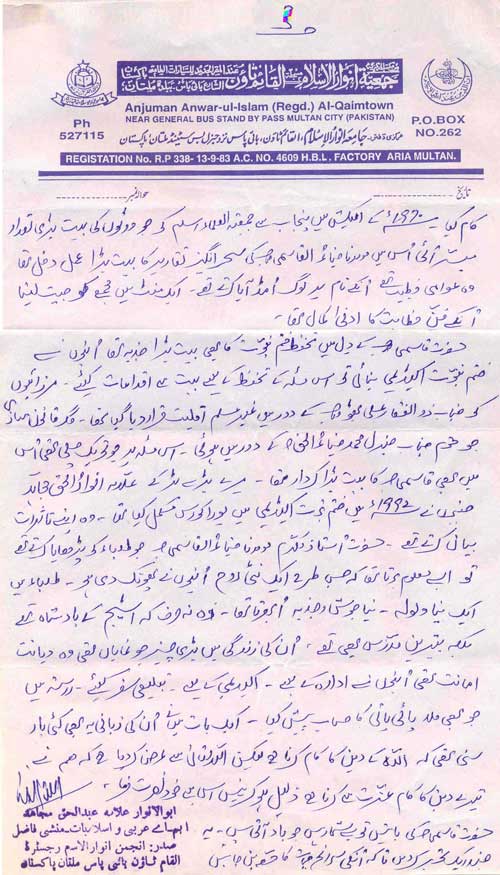 ۳
جمعیۃ انوار الاسلام القائم ٹاؤن
Anjuman Anwar-ul-Islam (Regd.) Al-Qaimtown
NEAR GENERAL BUS STAND BY PASS MULTAN CITY (PAKISTAN)
Ph
527115
P.O.BOX
NO.262
جامعہ انوار الاسلام، القائم ٹاؤن، بائی پاس نزد جنرل بس سٹینڈ ملتان پاکستان
REGISTRATION No. R.P 338- 13-9-83 A.C. NO. 4609 H.B.L. FACTORY ARIA MULTAN.
حوالہ نمبر تاریخ
کام کیا۔ ۱۹۷۰ء کے الیکشن میں پنجاب سے جمعیۃ العلماء اسلام کی جو ووٹوں کی بہت بڑی تعداد
میسر آئی اس میں مولانا ضیاء القاسمی کی سحر انگیز تقاریر کا بہت بڑا عمل دخل تھا
وہ عوامی خطیب تھے انکے نام پر لوگ امڈ آیا کرتے تھے۔ ایک منٹ میں مجمع کو جیت لینا
انکے فن خطابت کا ادنیٰ کمال تھا۔
حضرت قاسمی کے دل میں تحفظ ختم نبوت کا بھی بہت بڑا جذبہ تھا انہوں نے
ختم نبوت اکیڈیمی بنائی تو اس مسئلہ کے تحفظ کے لیے بہت سے اقدامات کیئے۔ مرزائیوں
کو جناب ذوالفقار علی بھٹو کے دور میں غیر مسلم اقلیت قرار دیا گیا تھا۔ مگر قانون سازی
جو ختم جناب جنرل محمد ضیاء الحق کے دور میں ہوئی۔ اس مسئلہ پر جو تحریک چلی تھی اس
میں بھی قاسمی کا بہت بڑا کردار تھا۔ میرے بڑے بڑے کے علامہ انوار الحق مجاہد
جنہوں نے ۱۹۹۲ء میں ختم نبوت اکیڈیمی میں پورا کورس مکمل کیا تھا۔ وہ اپنے تاثرات
بیان کرتے تھے۔ حضرت استاذ مکرم مولانا ضیاء القاسمی جو طلباء کو پڑھایا کرتے تھے
تو ایسے معلوم ہوتا تھا کہ جس طرح ایک نئی روح انہوں نے پھونک دی ہو۔ طلباء میں
ایک نیا ولولہ۔ نیا جوش و جذبہ ابھرتا تھا۔ وہ نہ صرف کہ اسٹیج کے بادشاہ تھے
بلکہ بہترین مدرس بھی تھے۔ ان کی زندگی میں بڑی چیز جو نمایاں تھی وہ دیانت
امانت تھی انہوں نے ادارہ کے لیے۔ اکیڈیمی کے لیے۔ تبلیغی سفر کیئے۔ رستہ میں
جو بھی ملا پائی پائی کا حساب پیش کیا۔ ایک بات میں نے ان کی زبانی یہ بھی کئی بار
سنی تھی کہ اللہ کے دین کا کام کرنا ہے لیکن اللہ تعالیٰ سے عرض کر دیا ہے کہ ہم نے
تیرے دین کا کام عزت سے کرنا ہے ذلیل ہو کر نہیں اسی لیے
حضرت قاسمی کی باتیں تو بے شمار ہیں جو یاد آتی ہیں۔ یہ
تحریر کر دیں تاکہ انکی سوانح حیات کا حصہ بن جائیں
ابو الانوار علامہ عبدالحق مجاہد
ایم اے عربی و اسلامیات۔ منشی فاضل
صدر: انجمن انوار الاسلام رجسٹرڈ
القائم ٹاؤن بائی پاس ملتان پاکستان